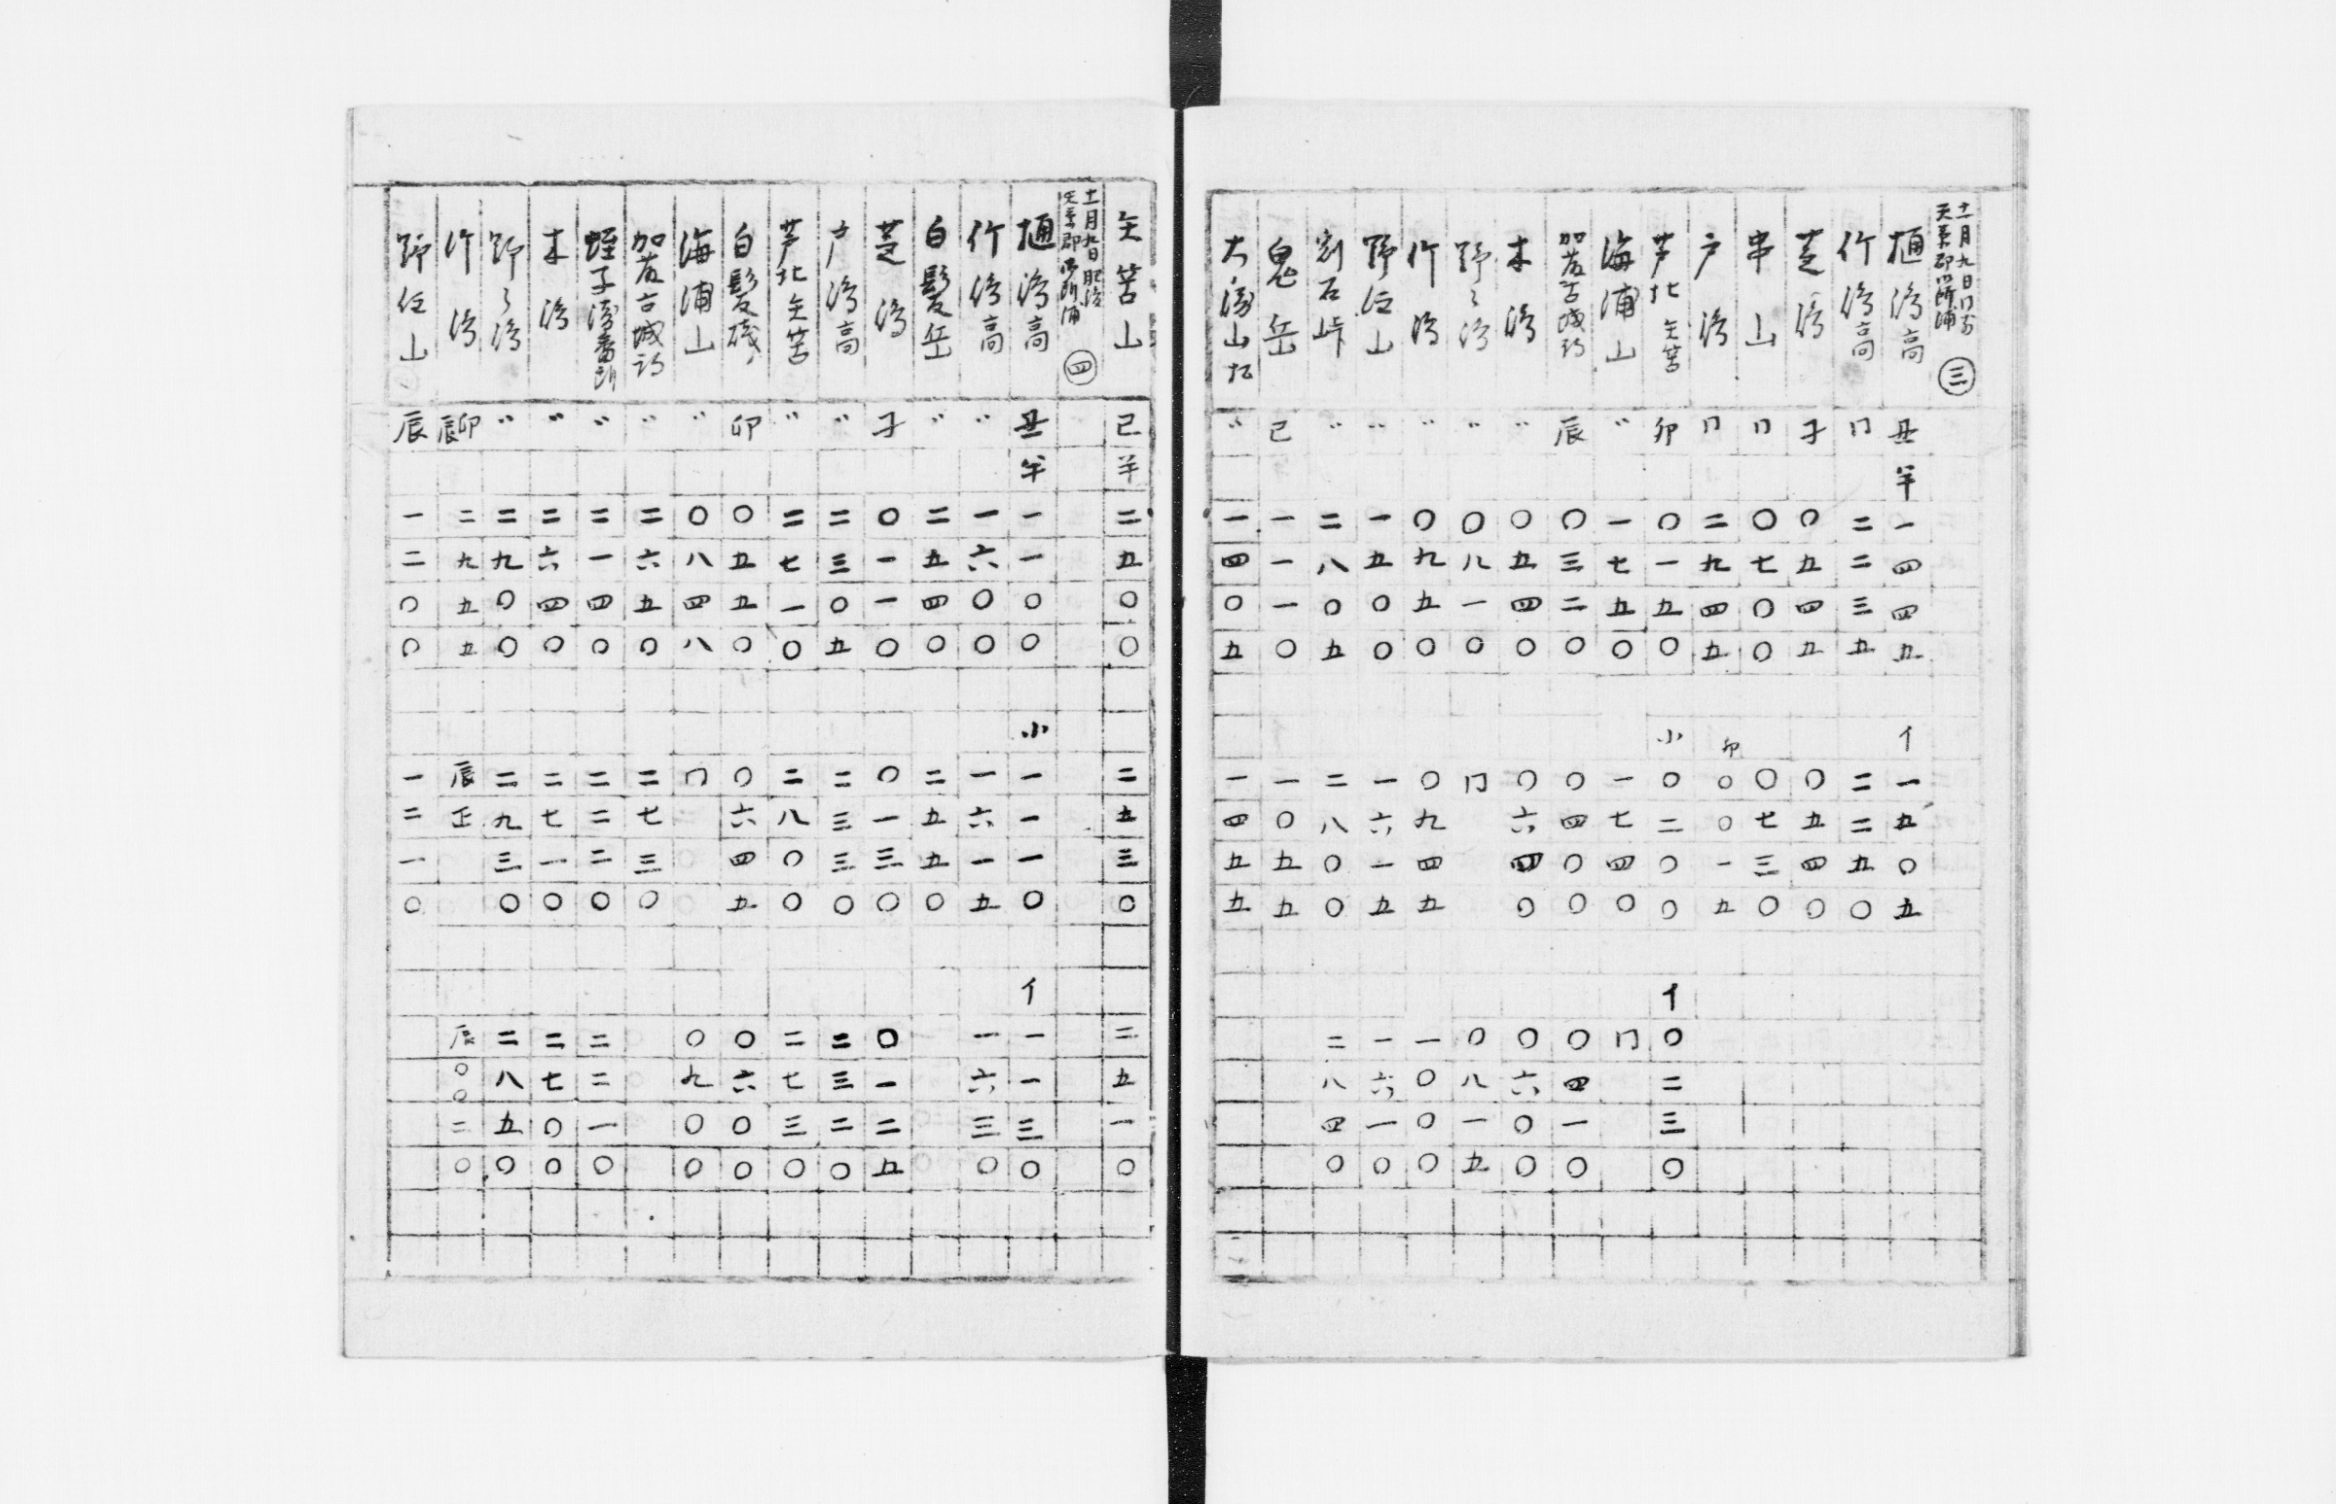 十一月九日 同前
天草郡御所浦 三
樋 高 丑 半 一四四五 イ 一五〇五
竹 高 冂 二二三五 二二五〇
芝 子 〇五四五 〇五四〇
串山 冂 〇七〇〇 〇七三〇
戸 冂 二九四五 卯 〇〇一五
芦北矢筈 卯 〇一五〇 小 〇二〇〇 イ 〇二三〇
海浦山 〃 一七五〇 一七四〇 冂
加 古城 辰 〇三二〇 〇四〇〇 〇四一〇
木 〃 〇五四〇 〇六四〇 〇六〇〇
野々 〃 〇八一〇 冂 〇八一五
竹 〃 〇九五〇 〇九四五 一〇〇〇
野 山 〃 一五〇〇 一六一五 一六一〇
割石峠 〃 二八〇五 二八〇〇 二八四〇
鬼岳 巳 一一一〇 一〇五五
大 山 〃 一四〇五 一四五五
矢筈山 巳 半 二五〇〇 二五三〇 二五一〇
十一月九日 肥後
天草郡御所浦 四
樋 高 丑 半 一一〇〇 小 一一一〇 イ 一一三〇
竹 高 〃 一六〇〇 一六一五 一六三〇
白髪岳 〃 二五四〇 二五五〇
芝 子 〇一一〇 〇一三〇 〇一二五
戸 高 〃 二三〇五 二三三〇 二三二〇
芦北矢筈 〃 二七一〇 二八〇〇 二七三〇
白髪磯 卯 〇五五〇 〇六四五 〇六〇〇
海浦山 〃 〇八四八 冂 〇九〇〇
加 古城 〃 二六五〇 二七三〇
蛭子 番所 〃 二一四〇 二二二〇 二二一〇
木 〃 二六四〇 二七一〇 二七〇〇
野々 〃 二九〇〇 二九三〇 二八五〇
竹 卯 辰 二九五五 辰 正 辰 〇〇二〇
野 山 辰 一二〇〇 一二一〇